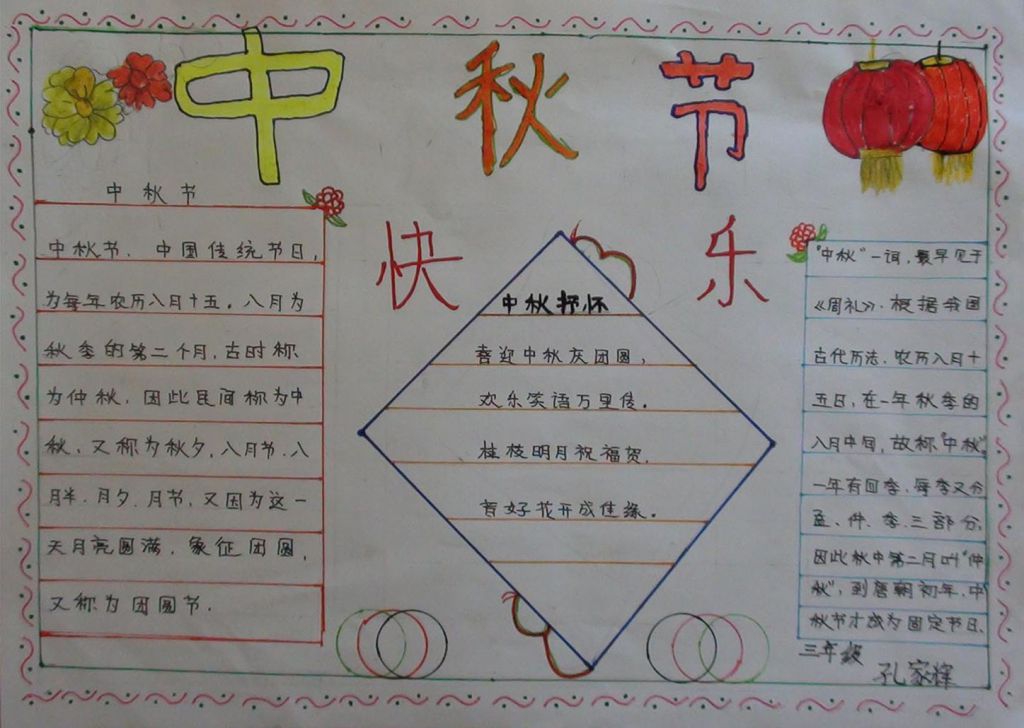 中秋节
快乐
中秋节
中秋节、中国传统节日,
为每年农历八月十五。八月为
秋季的第二个月,古时称
为仲秋,因此民间称为中
秋,又称为秋夕、八月节、八
月半、月夕、月节,又因为这一
天月亮圆满,象征团圆,
又称为团圆节.
中秋抒怀
喜迎中秋庆团圆,
欢乐笑语万里传。
桂枝明月祝福贺,
育好花开成佳缘。
"中秋"一词,最早见于
《周礼》.根据我国
古代历法,农历八月十
五日,在一年秋季的
八月中旬,故称"中秋"
一年有四季,每季又分
孟、仲、季、三部分,
因此秋中第二月叫"仲
秋",到唐朝初年,中
秋节才成为固定节日、
三年级
孔家辉